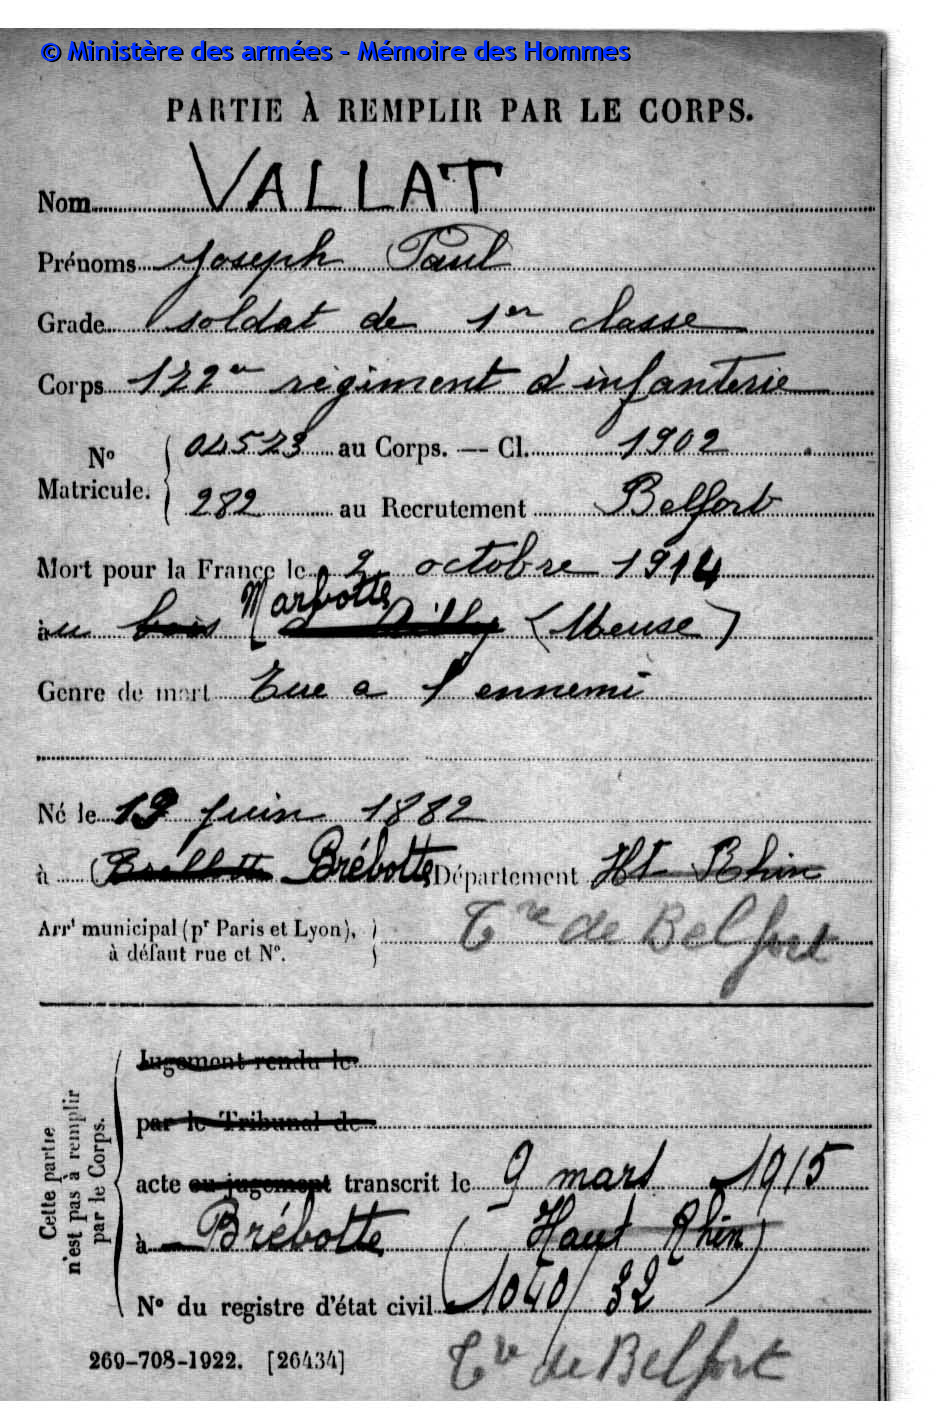 © Ministère des armées - Mémoire des Hommes
PARTIE À REMPLIR PAR LE CORPS.
Nom VALLAT
Prénoms Joseph Paul
Grade soldat de 1er classe
Corps 172e régiment d'infanterie
N° Matricule. 04523 au Corps. — Cl. 1902
282 au Recrutement Belfort
Mort pour la France le 2 octobre 1914
au bois Marbotte d'Ailly (Meuse)
Genre de mort Tué a l'ennemi
Né le 19 juin 1882
à Brébotte Département Ht Rhin
Arrt municipal (pr Paris et Lyon), à défaut rue et N°.
Tre de Belfort
Cette partie n'est pas à remplir par le Corps.
Jugement rendu le
par le Tribunal de
acte ou jugement transcrit le 9 mars 1915
à Brébotte (Haut Rhin)
N° du registre d'état civil 1040/32
269-708-1922. [26434]
Tre de Belfort